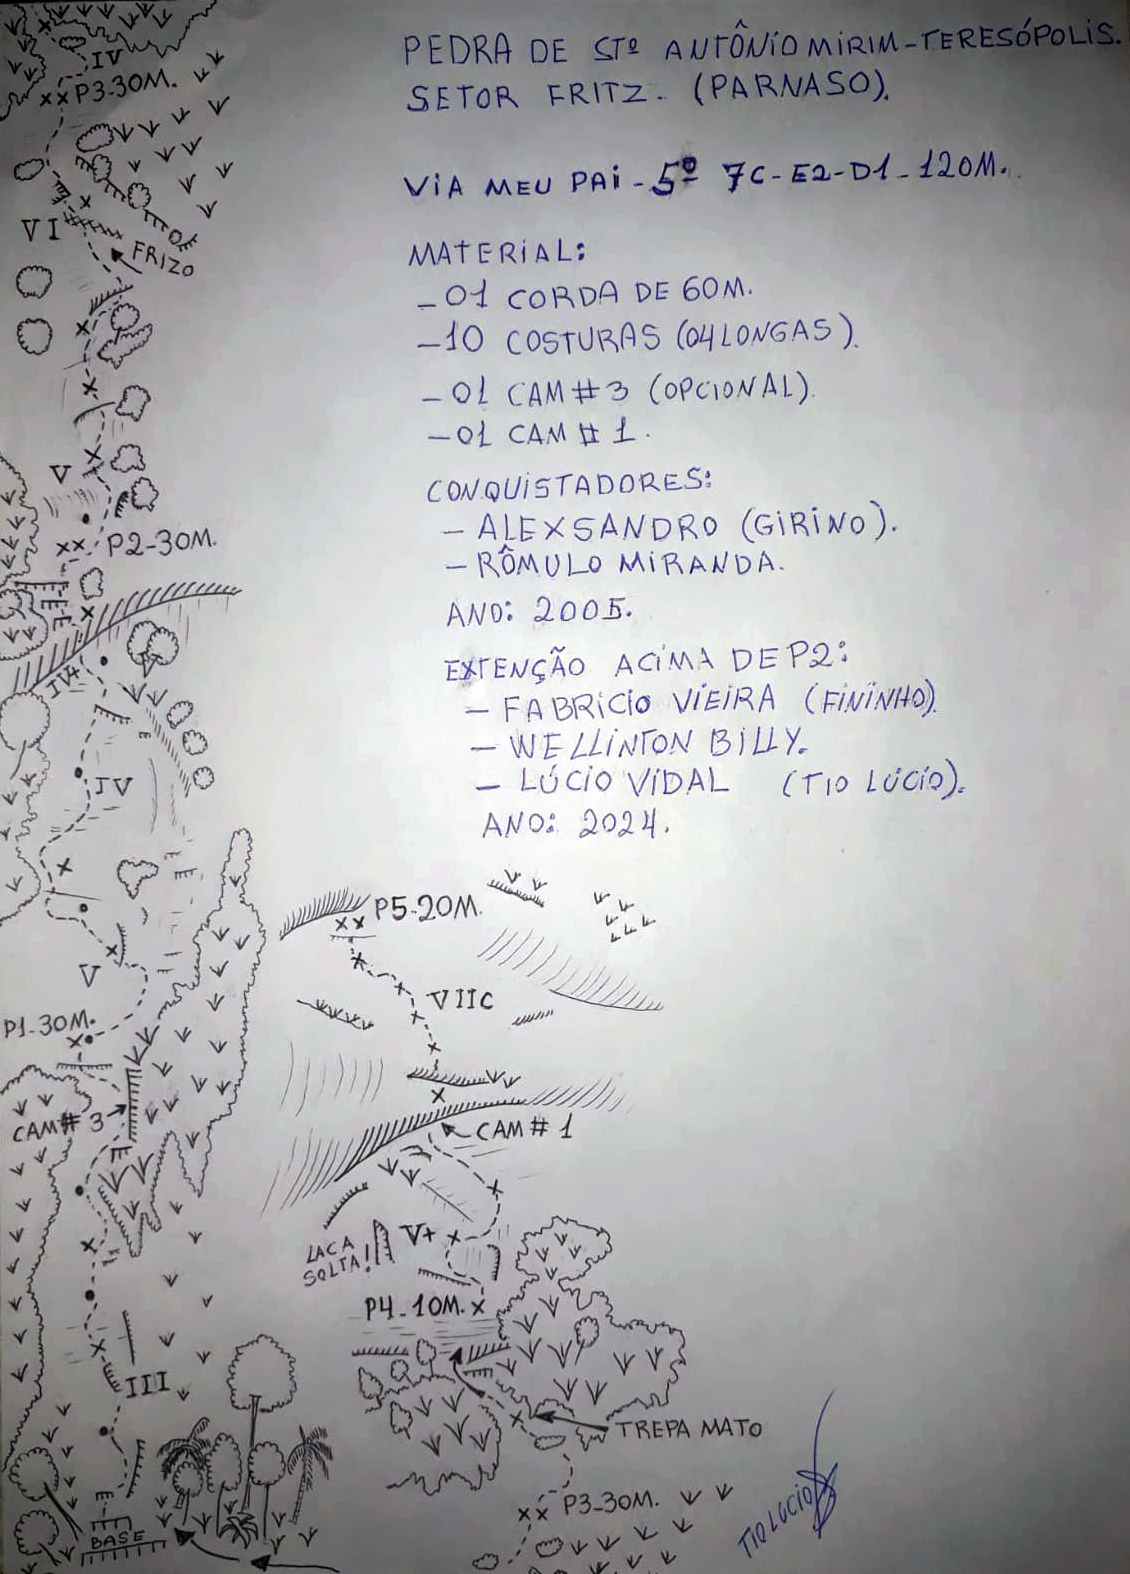 PEDRA DE STº ANTÔNIO MIRIM-TERESÓPOLIS.
SETOR FRITZ. (PARNASO).
VIA MEU PAI - 5º 7C-E2-D1-120M.
MATERIAL:
-01 CORDA DE 60M.
-10 COSTURAS (04 LONGAS).
-01 CAM #3 (OPCIONAL).
-01 CAM #1.
CONQUISTADORES:
- ALEXSANDRO (GIRINO).
- RÔMULO MIRANDA.
ANO: 2005.
EXTENÇÃO ACIMA DE P2:
- FABRICIO VIEIRA (FININHO).
- WELLINTON BILLY.
- LÚCIO VIDAL (TIO LÚCIO).
ANO: 2024.
IV
P3-30M.
VI
FRIZO
V
P2-30M.
IV+
IV
V
P1-30M.
CAM #3
III
BASE
P5-20M.
VIIC
CAM #1
LACA
SOLTA!
V+
P4-10M.
TREPA MATO
P3-30M.
TIO LUCIO